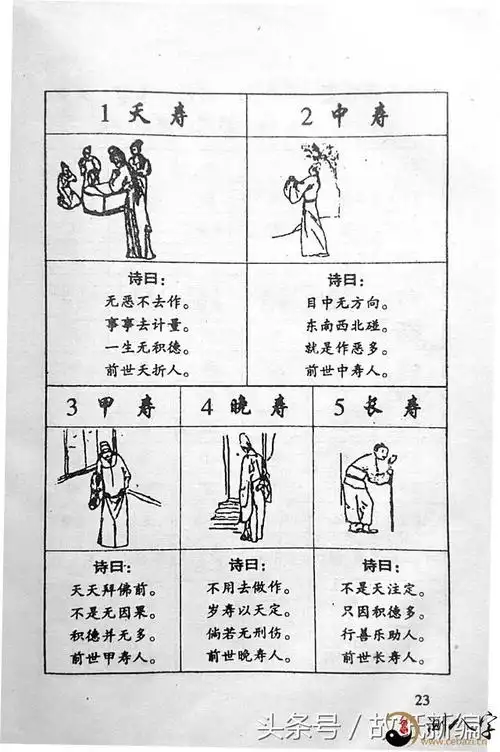 1 夭 寿
2 中 寿
诗曰：
无恶不去作。
事事去计量。
一生无积德。
前世夭折人。
诗曰：
目中无方向。
东南西北碰。
就是作恶多。
前世中寿人。
3 甲 寿
4 晚 寿
5 长 寿
诗曰：
天天拜佛前。
不是无因果。
积德并无多。
前世甲寿人。
诗曰：
不用去做作。
岁寿以天定。
倘若无刑伤。
前世晚寿人。
诗曰：
不是天注定。
只因积德多。
行善乐助人。
前世长寿人。
23
头条号 / 故纸新编
测八字
www.cebazi.com